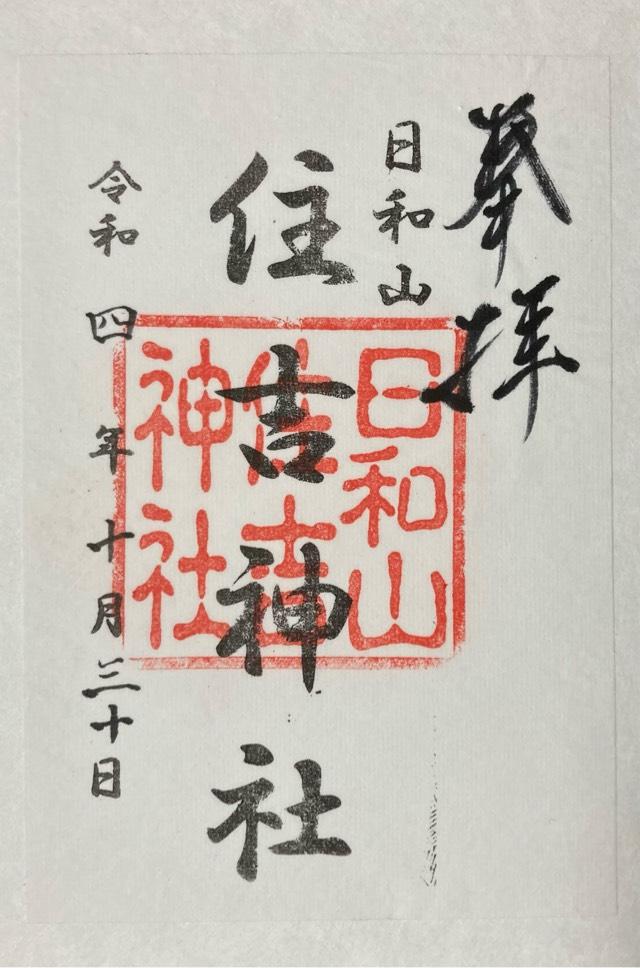 奉拝
日和山
住吉神社
令和四年十月三十日
日和山
住吉
神社